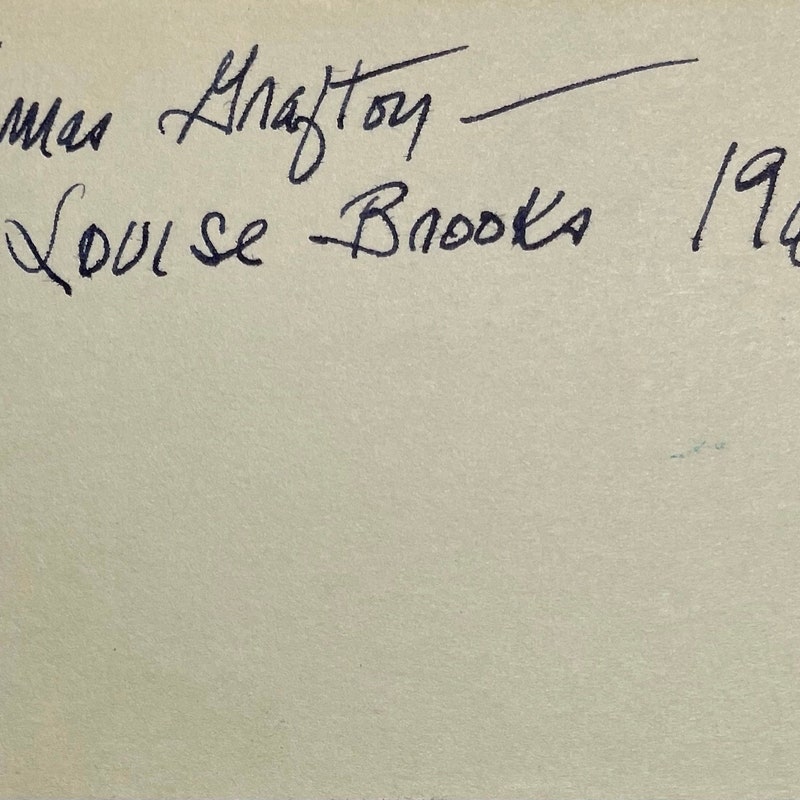 mas Grafton —
Louise Brooks 196